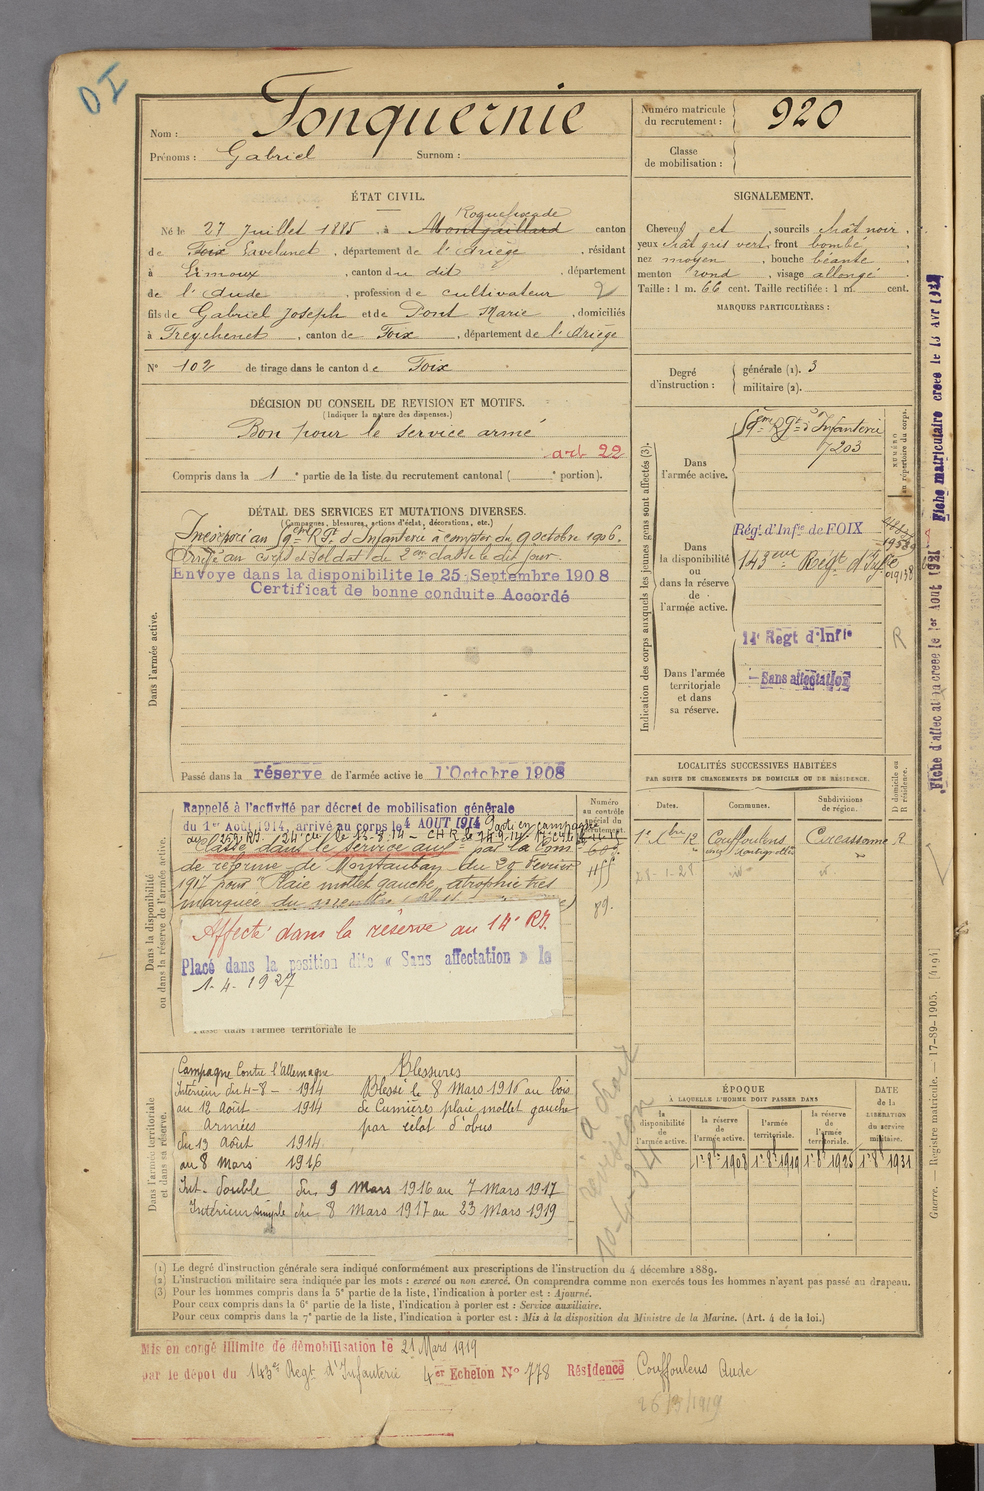 DI
Nom : Fonquernie
Prénoms : Gabriel Surnom :
Numéro matricule du recrutement : 920
Classe de mobilisation :
ÉTAT CIVIL.
Roquefixade
Né le 27 Juillet 1885, à Montgaillard canton
de Foix Lavelanet, département de l'Ariège, résidant
à Limoux, canton du dit, département
de l'Aude, profession de cultivateur 2
fils de Gabriel Joseph et de Pont Marie, domiciliés
à Freychenet, canton de Foix, département de l'Ariège
N° 102 de tirage dans le canton de Foix
SIGNALEMENT.
Cheveux et sourcils chât noir,
yeux chât gris vert, front bombé,
nez moyen, bouche béante,
menton rond, visage allongé.
Taille : 1 m. 66 cent. Taille rectifiée : 1 m. cent.
MARQUES PARTICULIÈRES :
Degré d'instruction : générale (1). 3
militaire (2).
DÉCISION DU CONSEIL DE REVISION ET MOTIFS.
(Indiquer la nature des dispenses.)
Bon pour le service armé
art 22
Compris dans la 1 e partie de la liste du recrutement cantonal ( e portion).
DÉTAIL DES SERVICES ET MUTATIONS DIVERSES.
(Campagnes, blessures, actions d'éclat, décorations, etc.)
Dans l'armée active.
Incorporé au 59eme Rgt d'Infanterie à compter du 9 octobre 1906.
Arrivé au corps et soldat de 2eme classe le dit jour.
Envoyé dans la disponibilité le 25 Septembre 1908
Certificat de bonne conduite Accordé
Passé dans la réserve de l'armée active le 1 Octobre 1908
Indication des corps auxquels les jeunes gens sont affectés (3).
NUMÉRO au répertoire du corps.
Dans l'armée active.
59eme Rgt d'Infanterie
7203
Dans la disponibilité ou dans la réserve de l'armée active.
Régt d'Infie de FOIX
143eme Régt d'Infie
019158
14e Regt d'Infie
R
Dans l'armée territoriale et dans sa réserve.
Sans affectation
LOCALITÉS SUCCESSIVES HABITÉES
PAR SUITE DE CHANGEMENTS DE DOMICILE OU DE RÉSIDENCE.
Dates. Communes. Subdivisions de région. D domicile ou R résidence.
Couffoulens Carcassonne R
28-1-28
Dans la disponibilité ou dans la réserve de l'armée active.
Numéro au contrôle spécial du recrutement.
Rappelé à l'activité par décret de mobilisation générale
du 1er Août 1914, arrivé au corps le 4 AOUT 1914 Parti en campagne
Classé dans le service aux par la Com
de réforme de Montauban du 20 Fevrier
1917 pour Plaie mollet gauche, atrophie très
marquée du membre
89.
Affecté dans la réserve au 14e RI.
Placé dans la position dite « Sans affectation » le
1-4-1927
Passé dans l'armée territoriale le
Dans l'armée territoriale et dans sa réserve.
Campagne contre l'Allemagne
Intérieur du 4-8- 1914
au 12 Août 1914
Armées
du 13 Août 1914
au 8 Mars 1916
Int. double du 9 Mars 1916 au 7 Mars 1917
Intérieur simple du 8 Mars 1917 au 23 Mars 1919
Blessures
Blessé le 8 Mars 1916 au bois
de Cumières plaie mollet gauche
par éclat d'obus
ÉPOQUE
À LAQUELLE L'HOMME DOIT PASSER DANS
la disponibilité de l'armée active. la réserve de l'armée active. l'armée territoriale. la réserve de l'armée territoriale.
DATE de la LIBÉRATION du service militaire.
1r 8bre 1908 1r 8bre 1919 1r 8bre 1925 1r 8bre 1931
(1) Le degré d'instruction générale sera indiqué conformément aux prescriptions de l'instruction du 4 décembre 1889.
(2) L'instruction militaire sera indiquée par les mots : exercé ou non exercé. On comprendra comme non exercés tous les hommes n'ayant pas passé au drapeau.
(3) Pour les hommes compris dans la 5e partie de la liste, l'indication à porter est : Ajourné.
Pour ceux compris dans la 6e partie de la liste, l'indication à porter est : Service auxiliaire.
Pour ceux compris dans la 7e partie de la liste, l'indication à porter est : Mis à la disposition du Ministre de la Marine. (Art. 4 de la loi.)
Mis en congé illimité de démobilisation le 21 Mars 1919
par le dépôt du 143e Regt d'Infanterie 4er Echelon N° 778 Résidence Couffoulens Aude
26/3/1919
Guerre. — Registre matricule. — 17-89-1905. [4194]